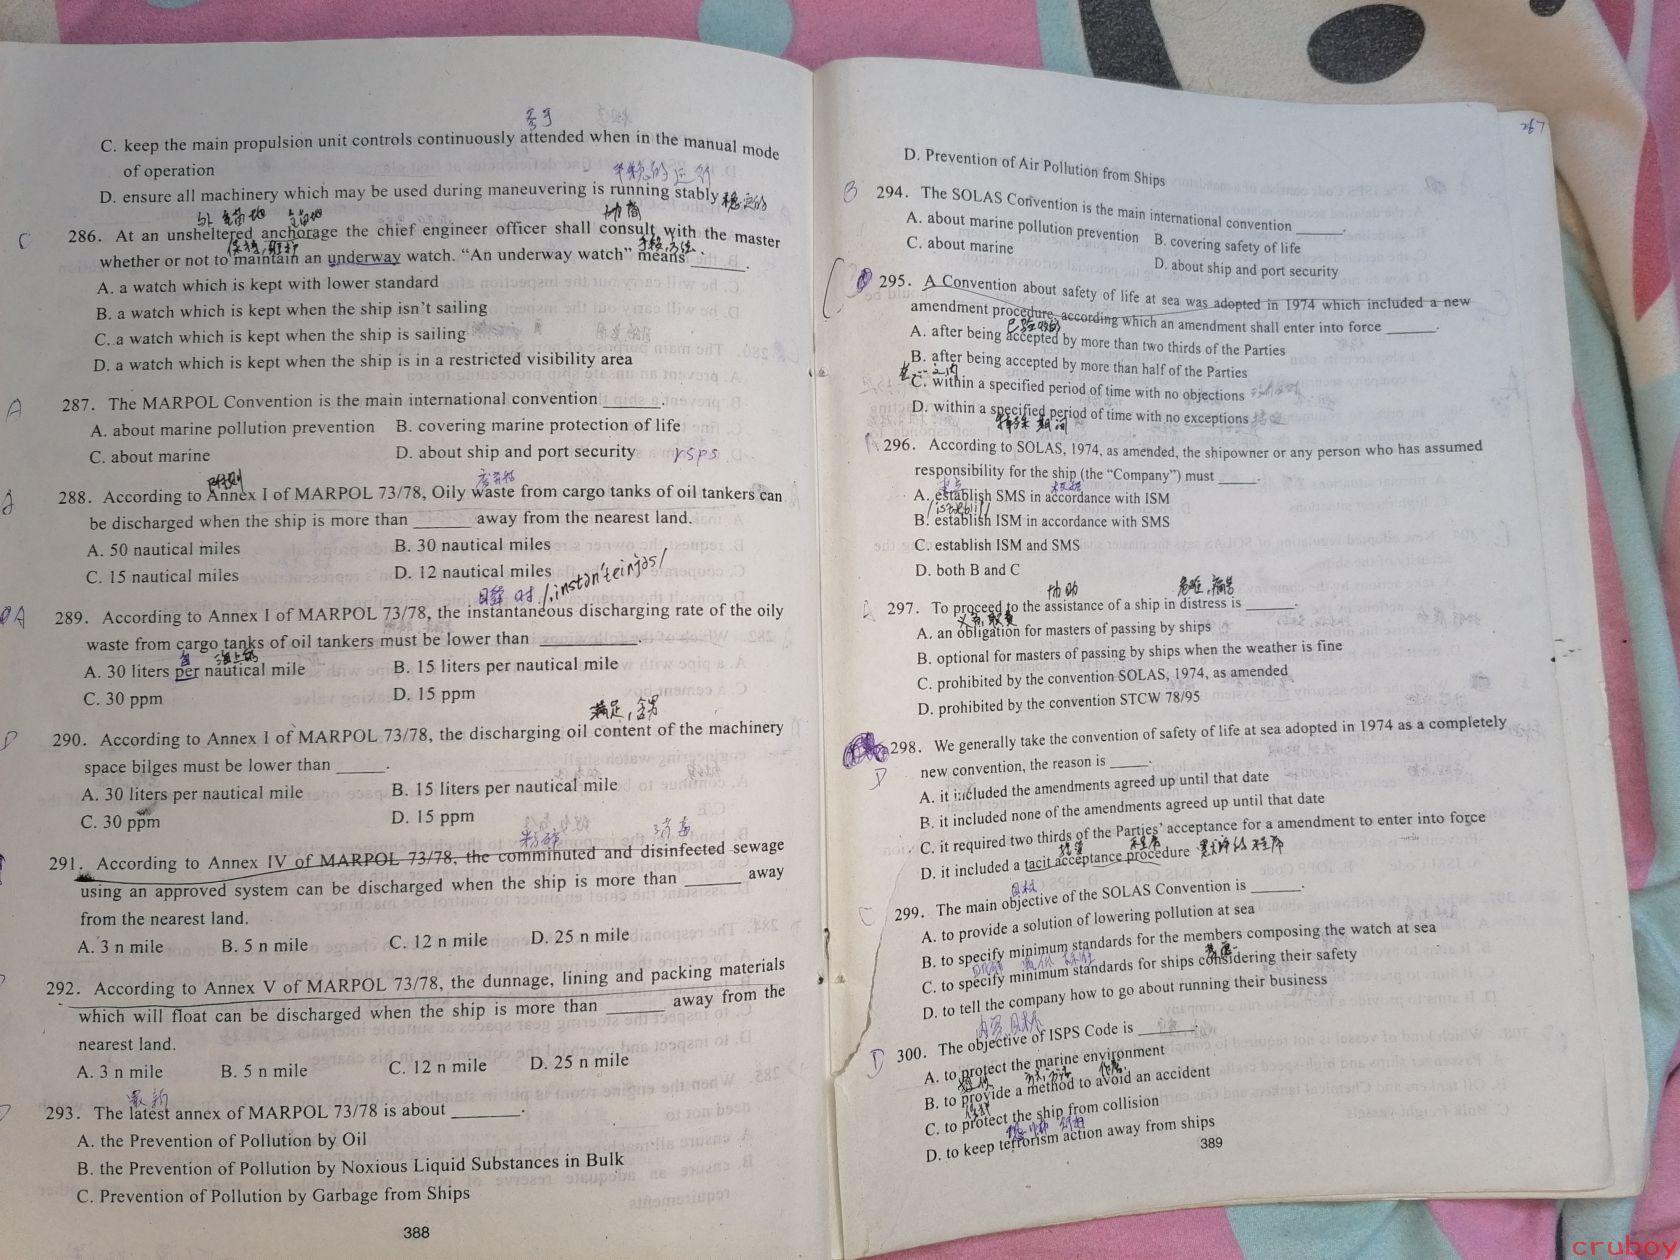 C. keep the main propulsion unit controls continuously attended when in the manual mode
of operation
平稳的运行
D. ensure all machinery which may be used during maneuvering is running stably 稳定的
协商
286. At an unsheltered anchorage the chief engineer officer shall consult with the master
C
whether or not to maintain an underway watch. “An underway watch” means ______.
A. a watch which is kept with lower standard
B. a watch which is kept when the ship isn’t sailing
C. a watch which is kept when the ship is sailing
D. a watch which is kept when the ship is in a restricted visibility area
A 287. The MARPOL Convention is the main international convention ______.
A. about marine pollution prevention B. covering marine protection of life
C. about marine D. about ship and port security rsps
附则
A 288. According to Annex I of MARPOL 73/78, Oily waste from cargo tanks of oil tankers can
be discharged when the ship is more than ______ away from the nearest land.
A. 50 nautical miles B. 30 nautical miles
C. 15 nautical miles D. 12 nautical miles
瞬时
A 289. According to Annex I of MARPOL 73/78, the instantaneous discharging rate of the oily
waste from cargo tanks of oil tankers must be lower than ______.
每 海上的
A. 30 liters per nautical mile B. 15 liters per nautical mile
C. 30 ppm D. 15 ppm
满足,含量
D 290. According to Annex I of MARPOL 73/78, the discharging oil content of the machinery
space bilges must be lower than ______.
A. 30 liters per nautical mile B. 15 liters per nautical mile
C. 30 ppm D. 15 ppm
粉碎 消毒
291. According to Annex IV of MARPOL 73/78, the comminuted and disinfected sewage
using an approved system can be discharged when the ship is more than ______ away
from the nearest land.
A. 3 n mile B. 5 n mile C. 12 n mile D. 25 n mile
292. According to Annex V of MARPOL 73/78, the dunnage, lining and packing materials
which will float can be discharged when the ship is more than ______ away from the
nearest land.
A. 3 n mile B. 5 n mile C. 12 n mile D. 25 n mile
最新
293. The latest annex of MARPOL 73/78 is about ______.
A. the Prevention of Pollution by Oil
B. the Prevention of Pollution by Noxious Liquid Substances in Bulk
C. Prevention of Pollution by Garbage from Ships
388
267
D. Prevention of Air Pollution from Ships
B 294. The SOLAS Convention is the main international convention ______.
A. about marine pollution prevention B. covering safety of life
C. about marine D. about ship and port security
295. A Convention about safety of life at sea was adopted in 1974 which included a new
amendment procedure, according which an amendment shall enter into force ______.
A. after being accepted by more than two thirds of the Parties
B. after being accepted by more than half of the Parties
C. within a specified period of time with no objections
D. within a specified period of time with no exceptions
特殊 期间
A 296. According to SOLAS, 1974, as amended, the shipowner or any person who has assumed
responsibility for the ship (the “Company”) must ______.
A. establish SMS in accordance with ISM
B. establish ISM in accordance with SMS
C. establish ISM and SMS
D. both B and C
协助 危难,痛苦
A 297. To proceed to the assistance of a ship in distress is ______.
A. an obligation for masters of passing by ships
B. optional for masters of passing by ships when the weather is fine
C. prohibited by the convention SOLAS, 1974, as amended
D. prohibited by the convention STCW 78/95
298. We generally take the convention of safety of life at sea adopted in 1974 as a completely
D
new convention, the reason is ______.
A. it included the amendments agreed up until that date
B. it included none of the amendments agreed up until that date
C. it required two thirds of the Parties’ acceptance for a amendment to enter into force
接受 程序
D. it included a tacit acceptance procedure
目标
C 299. The main objective of the SOLAS Convention is ______.
A. to provide a solution of lowering pollution at sea
B. to specify minimum standards for the members composing the watch at sea
C. to specify minimum standards for ships considering their safety
D. to tell the company how to go about running their business
D 300. The objective of ISPS Code is ______.
A. to protect the marine environment
B. to provide a method to avoid an accident
C. to protect the ship from collision
D. to keep terrorism action away from ships
389
cruboy